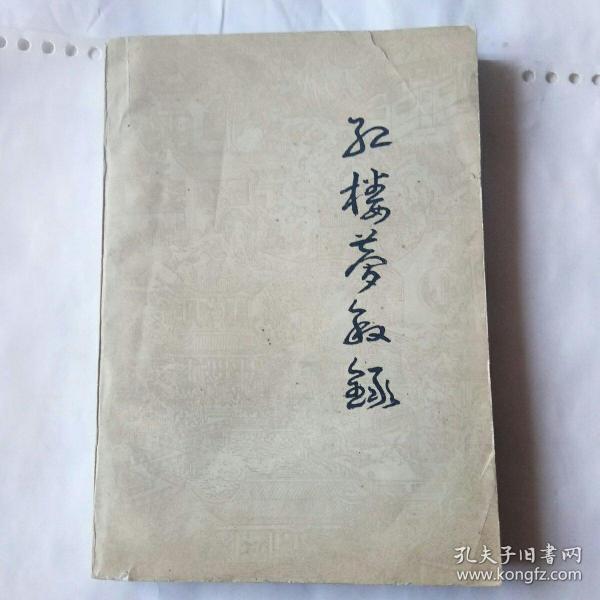 红楼梦叙録
孔夫子旧书网
www.kongfz.com